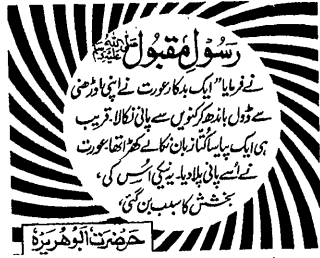 رسولِ مقبول ﷺ
نے فرمایا "ایک بدکار عورت نے اپنی اوڑھنی
سے ڈول باندھ کر کنویں سے پانی نکالا۔ قریب
ہی ایک پیاسا کتا زبان نکالے کھڑا تھا۔ عورت
نے اُسے پانی پلا دیا۔ یہ نیکی اُس کی
بخشش کا سبب بن گئی،
حضرت ابوھریرہ